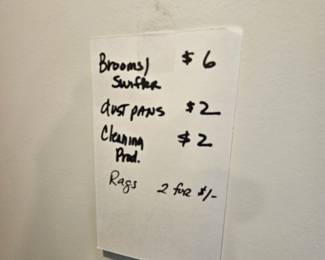 Brooms/ $6
Swiffer
dust pans $2
Cleaning $2
Prod.
Rags 2 for $1-